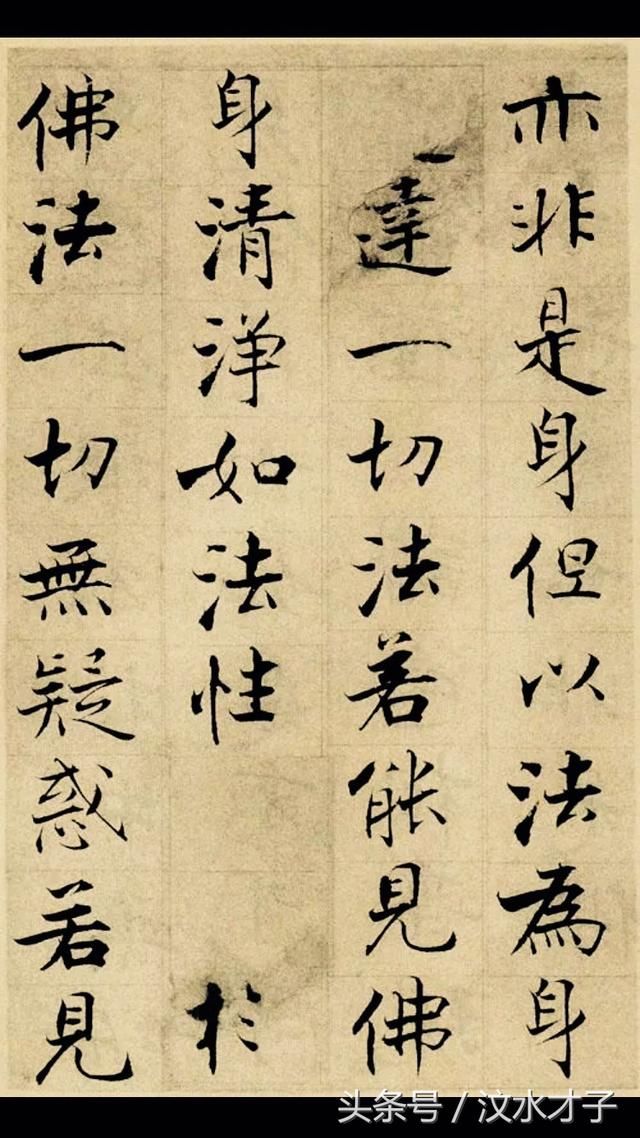 亦非是身但以法為身
達一切法若能見佛
身清淨如法性 於
佛法一切無疑惑若見
头条号 / 汶水才子